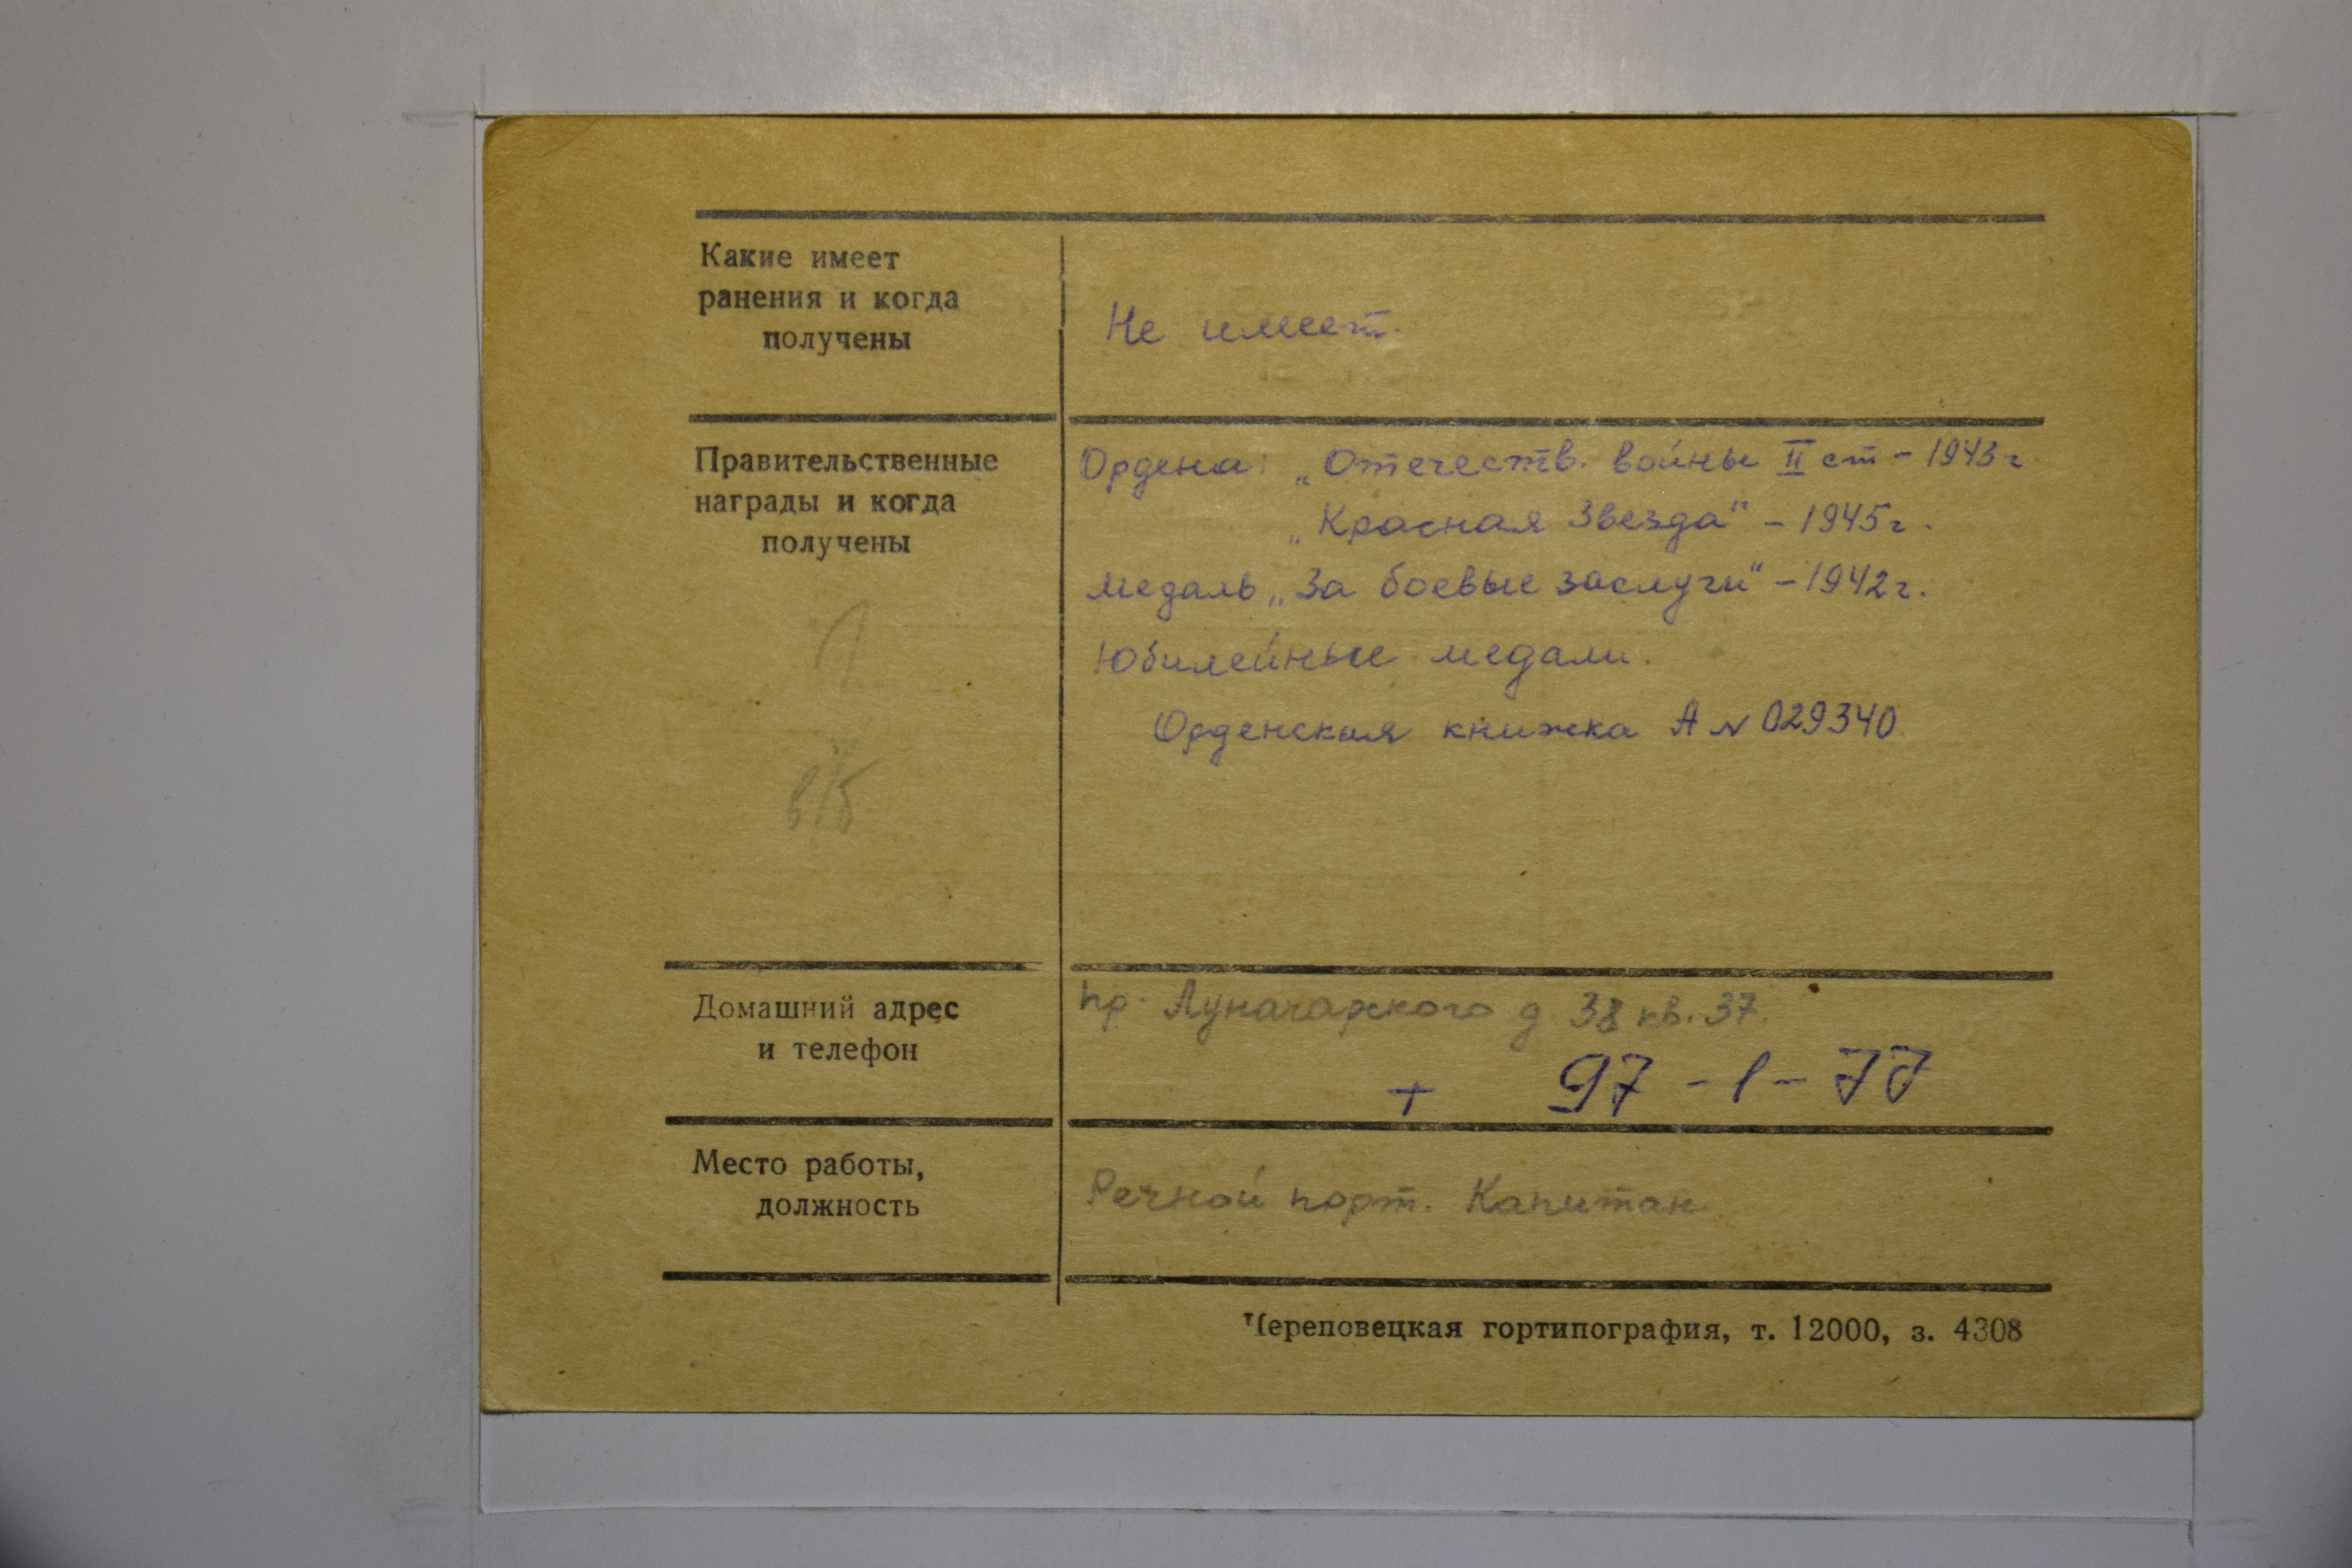 Какие имеет
ранения и когда
получены
Не имеет.
Правительственные
награды и когда
получены
Ордена: „Отечеств. войны II ст – 1943 г.
„Красная Звезда" – 1945 г.
медаль „За боевые заслуги" – 1942 г.
Юбилейные медали.
Орденская книжка А № 029340.
в/б
Домашний адрес
и телефон
пр. Луначарского д 38 кв. 37.
+ 97 - 1 - 77
Место работы,
должность
Речной порт. Капитан
Череповецкая гортипография, т. 12000, з. 4308